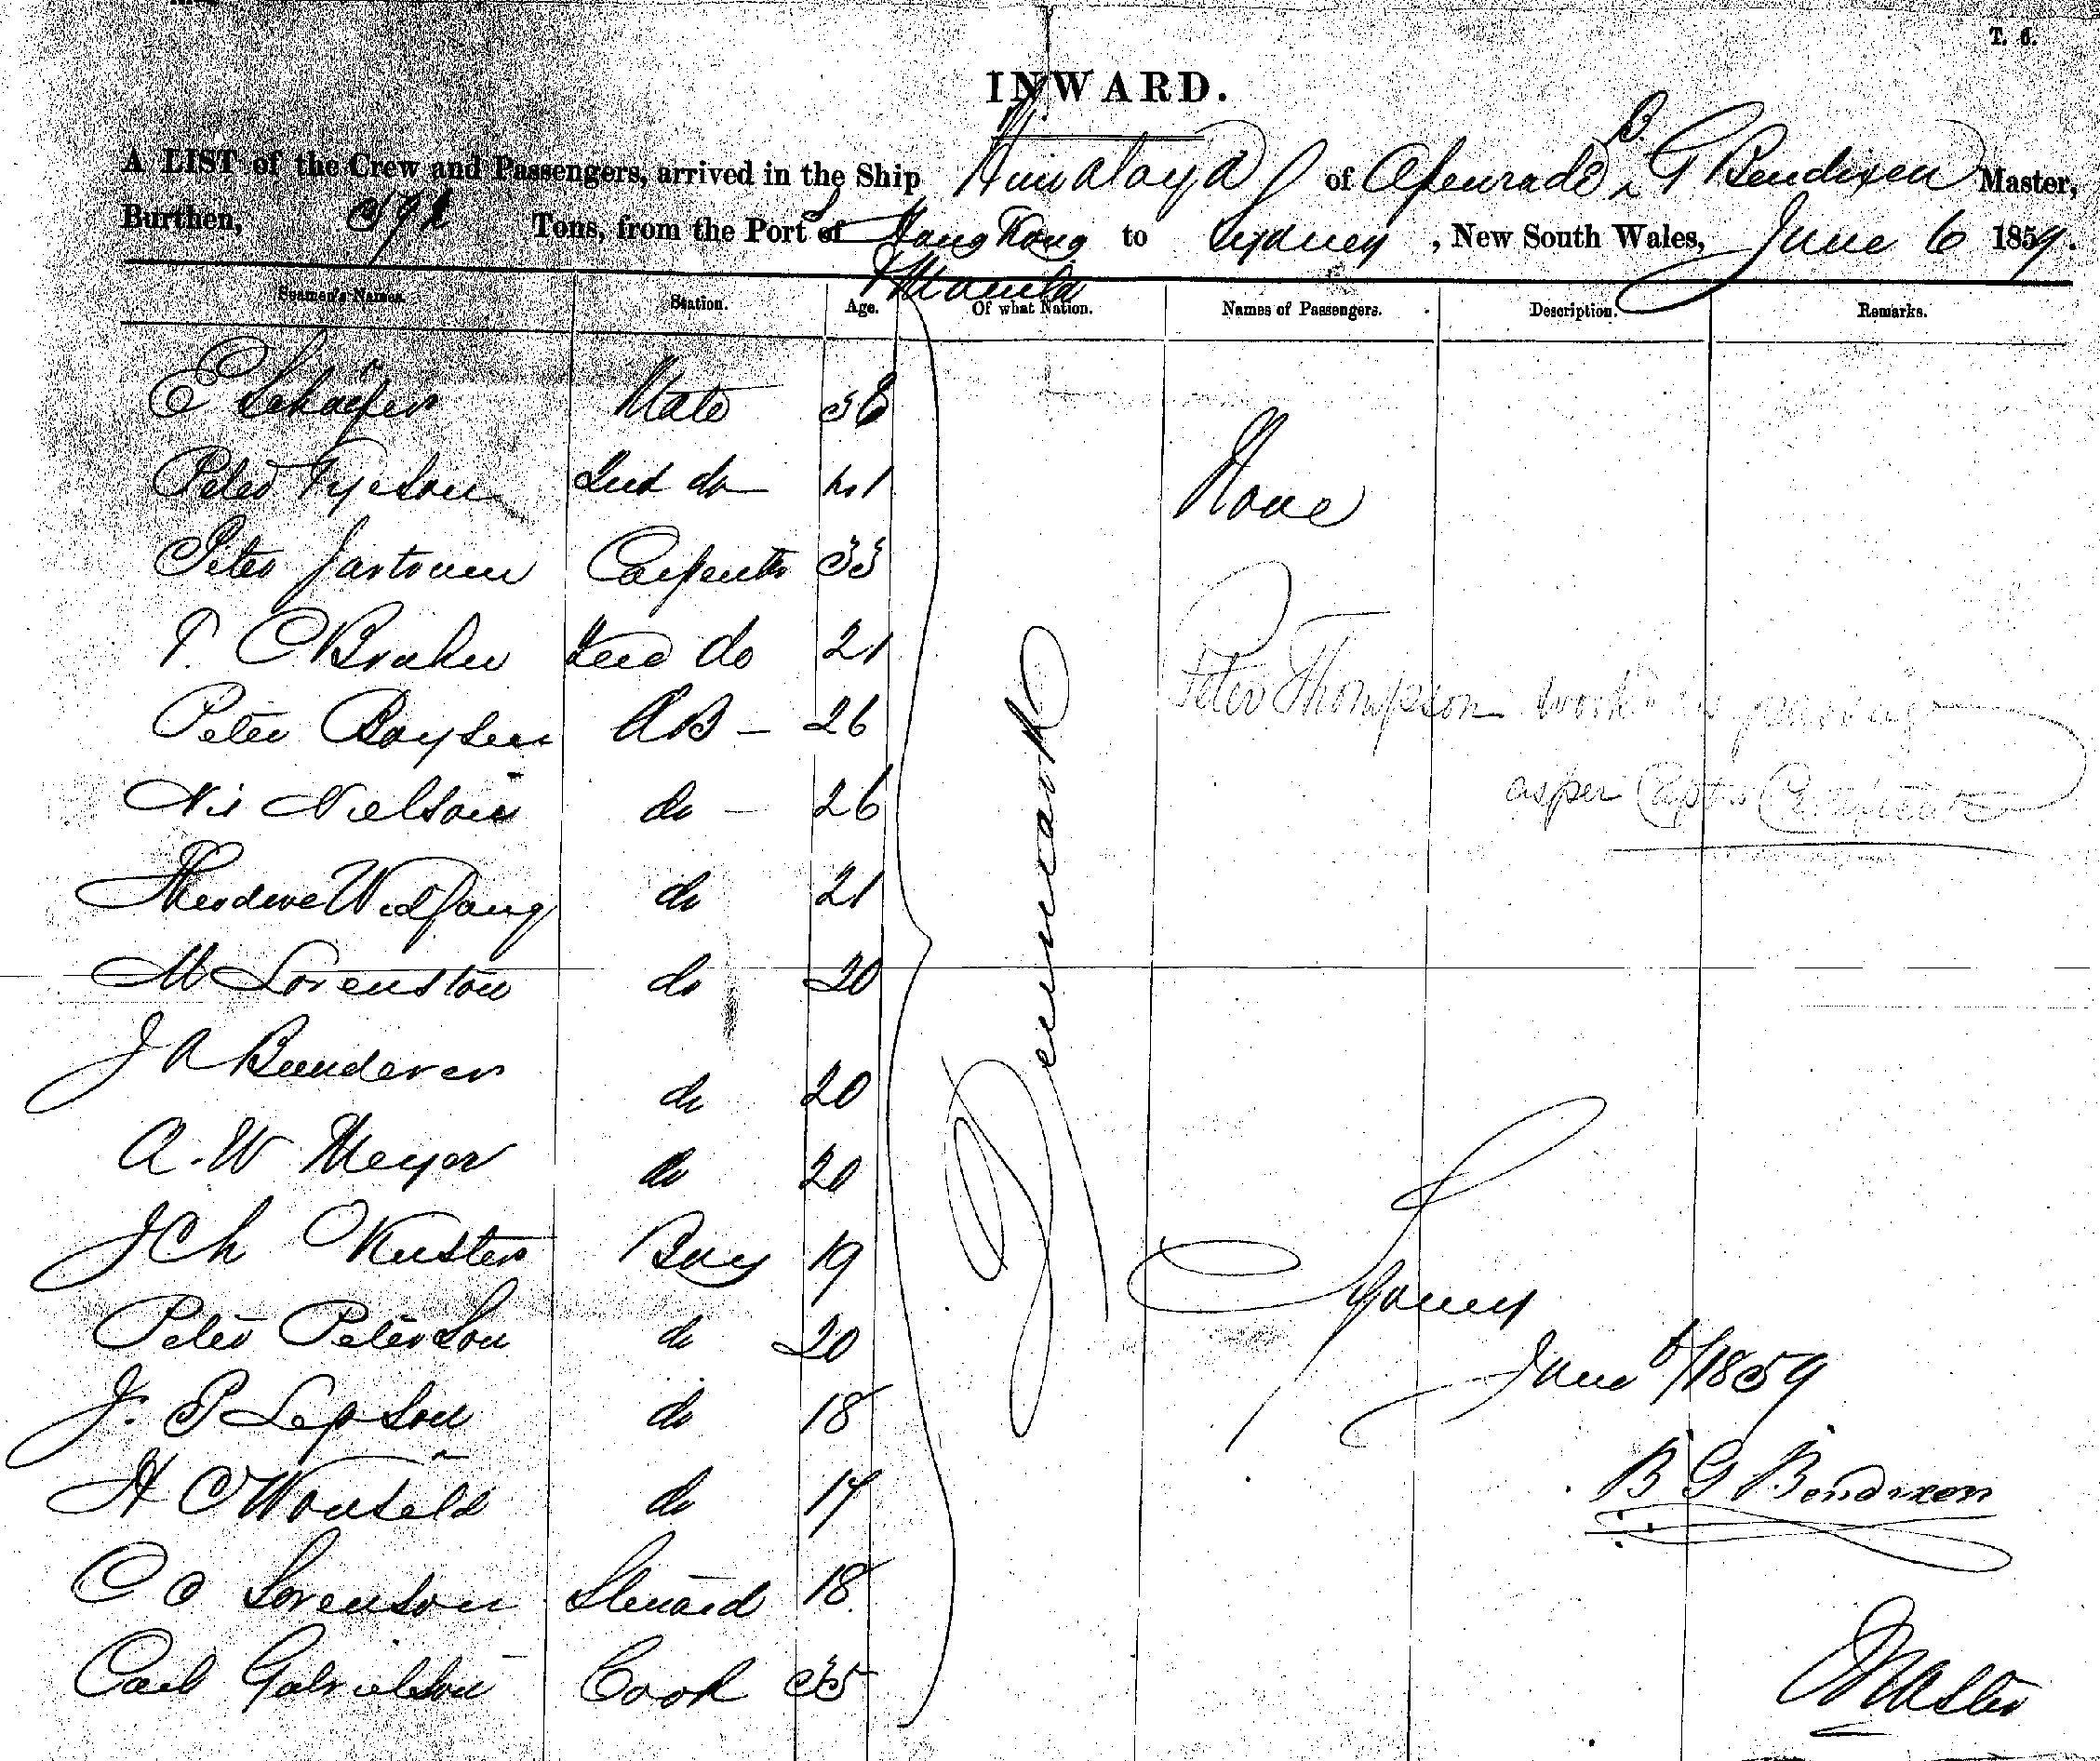 T. 6.
INWARD.
A LIST of the Crew and Passengers, arrived in the Ship Himalaya of Apenrade, B. G Bendixen Master,
Burthen, 592 Tons, from the Port of Hong Kong to Sydney, New South Wales, June 6 1859.
& Manila
Seamen's Names. Station. Age. Of what Nation. Names of Passengers. Description. Remarks.
E Schäfer Mate 38
Peter Tyeson 2nd do 41
None
Peter Carpentr 33
P. C Brahn 2nd do 21
Peter Thompson work his passage
Peter Boysen AB – 26
as per Capts Certificate
Nis Nielson do – 26
Theodore Wolfgang do 21
Denmark
M Sorenston do 20
J A do 20
A. W Meyer do 20
J Ch Kuster Boy 19
Sydney
Peter Peterson do 20
June 6/1859
J. P Lepson do 18
B G Bendixen
H C do 17
C C Sorenson Steward 18
Carl Gabrielson Cook 35
Master